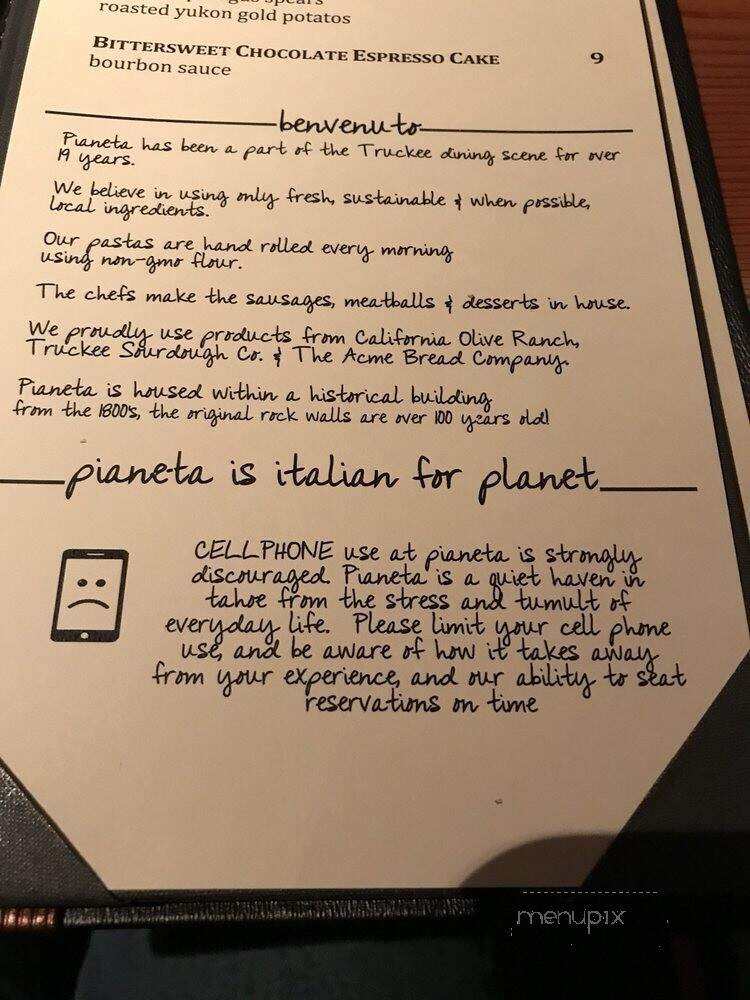 spears
roasted yukon gold potatos
BITTERSWEET CHOCOLATE ESPRESSO CAKE 9
bourbon sauce
benvenuto
Pianeta has been a part of the Truckee dining scene for over
19 years.
We believe in using only fresh, sustainable & when possible,
local ingredients.
Our pastas are hand rolled every morning
using non-gmo flour.
The chefs make the sausages, meatballs & desserts in house.
We proudly use products from California Olive Ranch,
Truckee Sourdough Co. & The Acme Bread Company.
Pianeta is housed within a historical building
from the 1800's, the original rock walls are over 100 years old!
pianeta is italian for planet
CELLPHONE use at pianeta is strongly
discouraged. Pianeta is a quiet haven in
tahoe from the stress and tumult of
everyday life. Please limit your cell phone
use, and be aware of how it takes away
from your experience, and our ability to seat
reservations on time
menupix